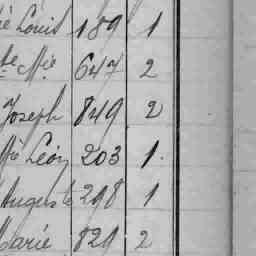 Louis 189 1
te Mie 647 2
Joseph 849 2
Mie Léon 203 1.
Auguste 298 1
Marie 829 2